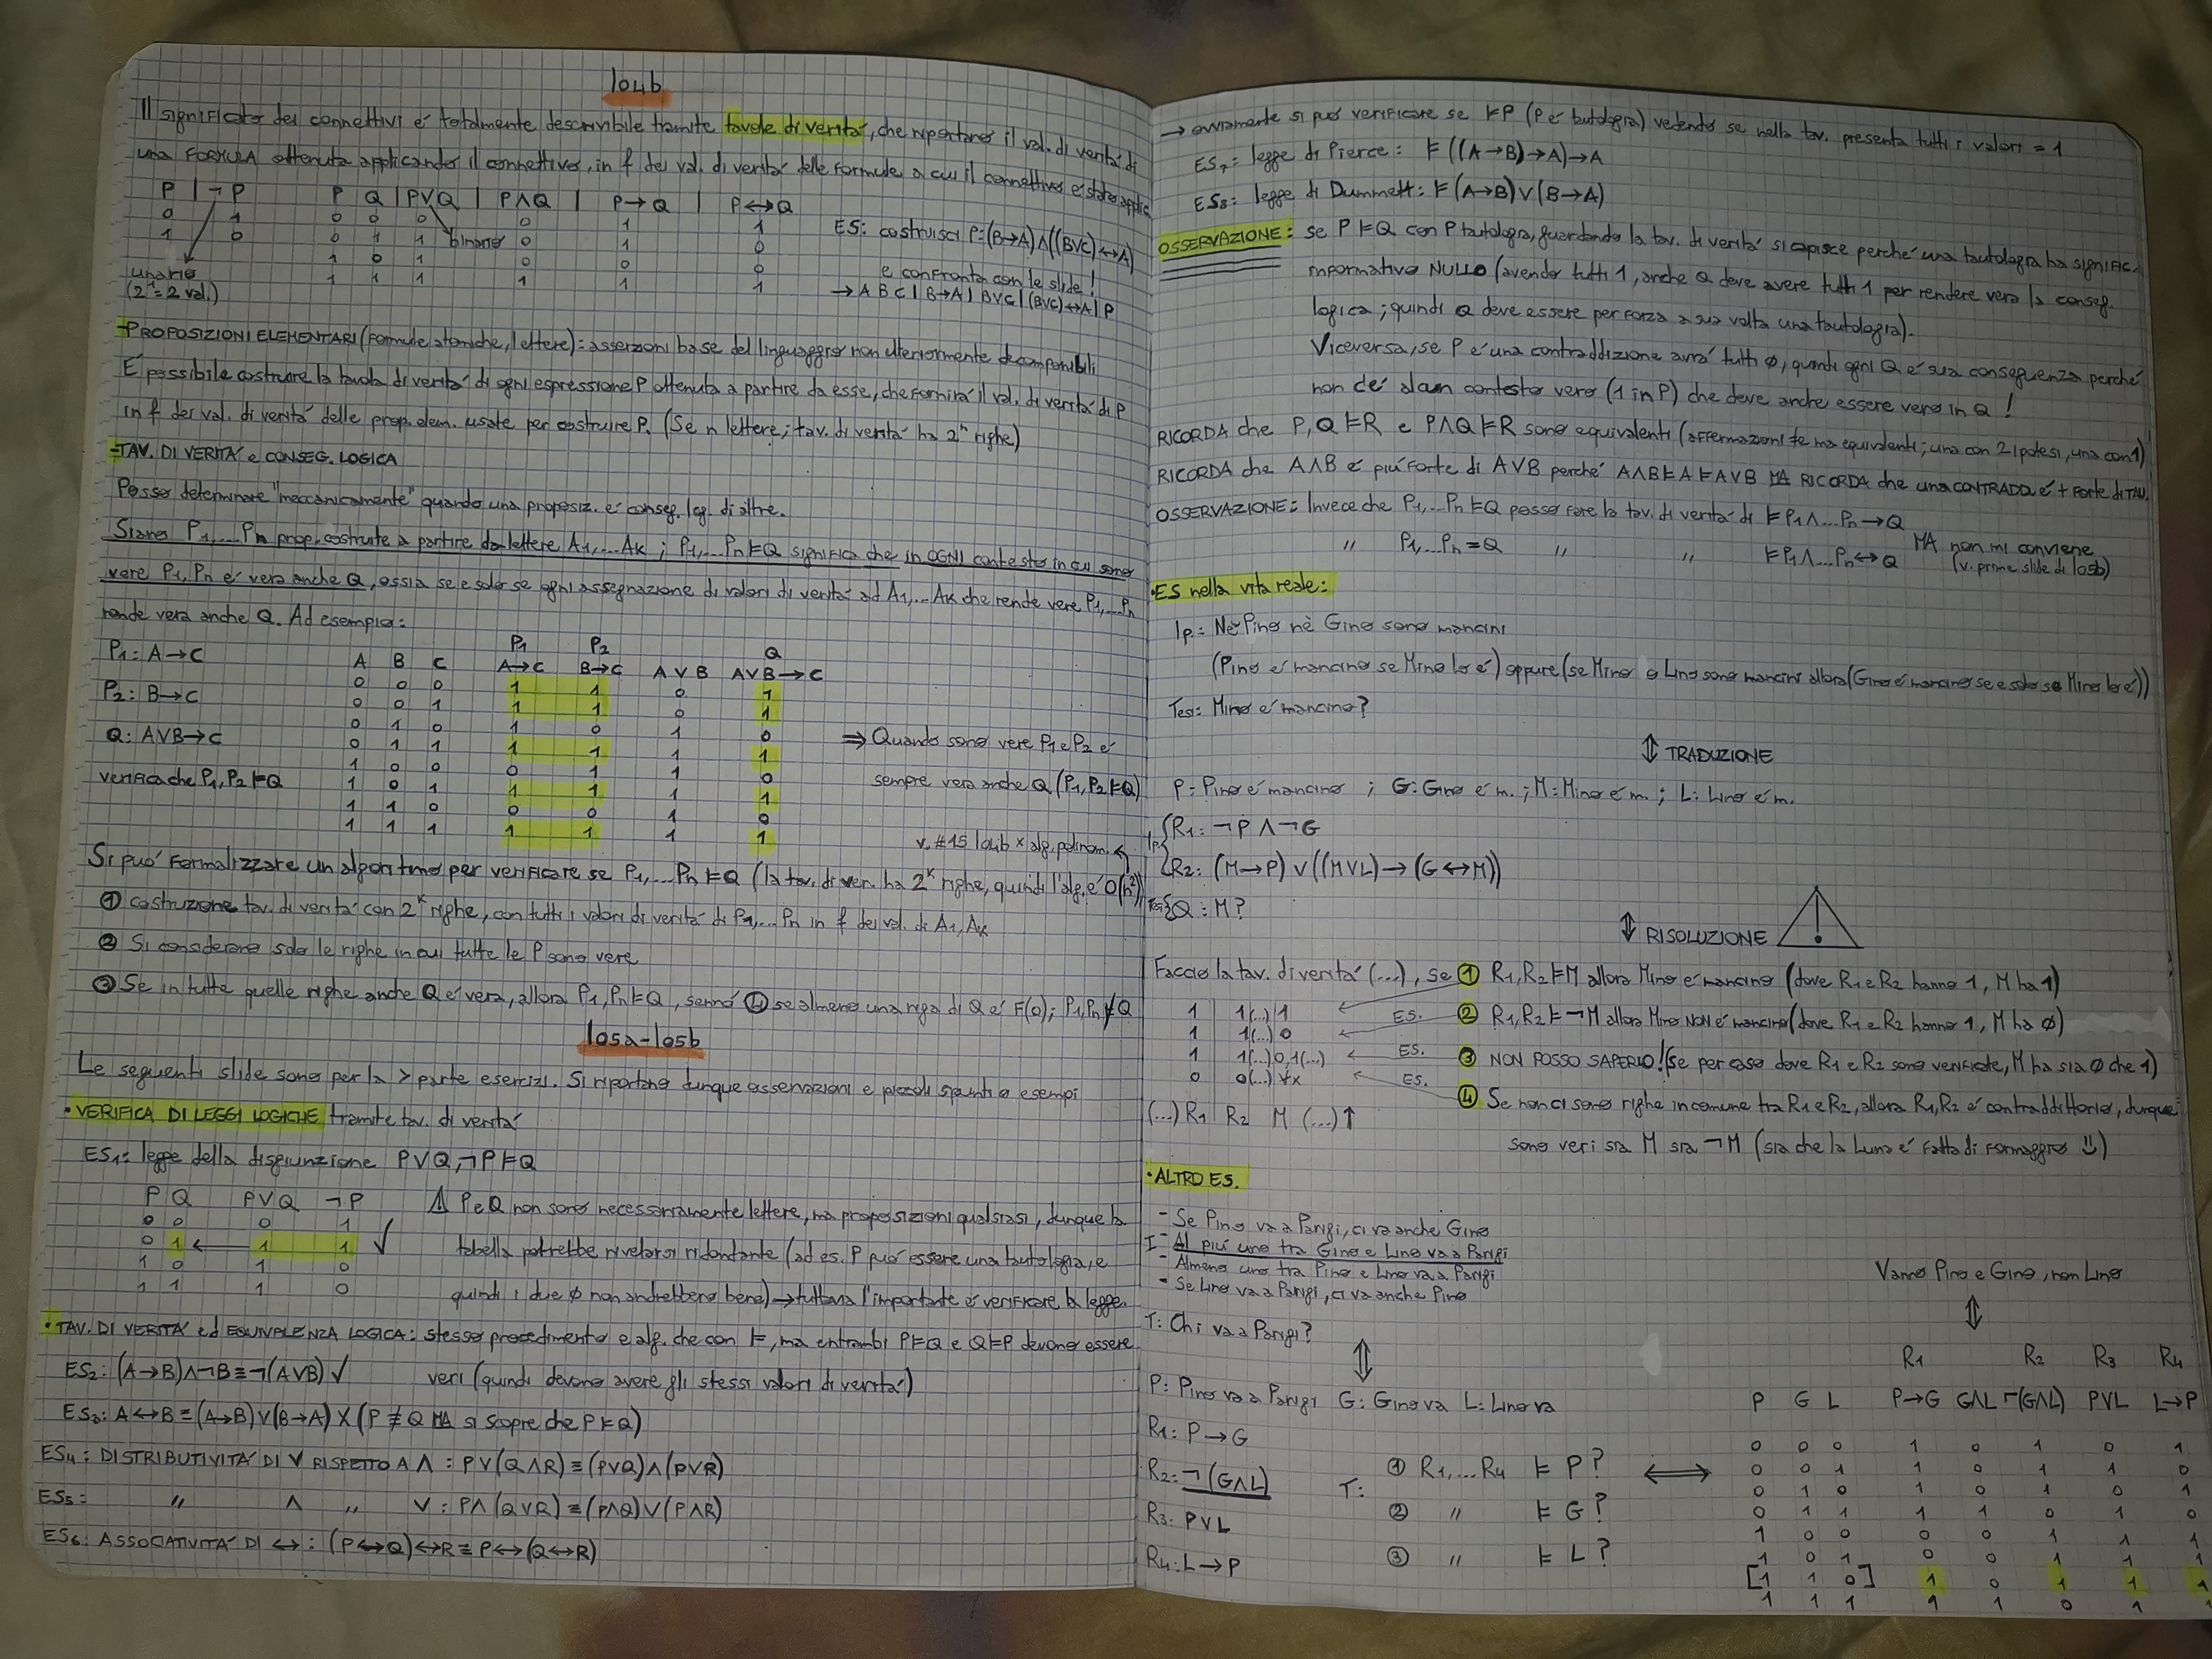 lo4b
Il significato dei connettivi é totalmente descrivibile tramite tavole di veritá, che riportano il val. di veritá di
una FORMULA ottenuta applicando il connettivo, in f dei val. di veritá delle formule a cui il connettivo é stato applic.
P | ¬P    P Q | PVQ | PΛQ | P→Q | P↔Q
0 1    0 0 0 0 1 1
1 0    0 1 1 0 1 0
1 0 1 0 0 0
1 1 1 1 1 1
binario
unario
(2¹=2 val.)
ES: costruisci P=(B→A)Λ((BVC)↔A)
e confronta con le slide!
→ A B C | B→A | BVC | (BVC)↔A | P
-PROPOSIZIONI ELEMENTARI (formule atomiche, lettere): asserzioni base del linguaggio non ulteriormente decomponibili
É possibile costruire la tavola di veritá di ogni espressione P ottenuta a partire da esse, che fornirá il val. di veritá di P
in f dei val. di veritá delle prop. elem. usate per costruire P. (Se n lettere; tav. di veritá ha 2ⁿ righe)
-TAV. DI VERITÁ e CONSEG. LOGICA
Posso determinare "meccanicamente" quando una proposiz. é conseg. log. di altre.
Siano P1,...Pn prop. costruite a partire da lettere A1,...Ak ; P1,...Pn ⊨Q significa che in OGNI contesto in cui sono
vere P1,Pn é vera anche Q, ossia se e solo se ogni assegnazione di valori di veritá ad A1,...Ak che rende vere P1,...Pn
rende vera anche Q. Ad esempio:
P1: A→C
P2: B→C
Q: AVB→C
verifica che P1,P2⊨Q
P1 P2 Q
A B C A→C B→C AVB AVB→C
0 0 0 1 1 0 1
0 0 1 1 1 0 1
0 1 0 1 0 1 0
0 1 1 1 1 1 1
1 0 0 0 1 1 0
1 0 1 1 1 1 1
1 1 0 0 0 1 0
1 1 1 1 1 1 1
⇒ Quando sono vere P1 e P2 é
sempre vera anche Q (P1,P2⊨Q)
v. #15 lo4b x alg. polinom.
Si puó formalizzare un algoritmo per verificare se P1,...Pn ⊨Q (la tav. di ver. ha 2ᵏ righe, quindi l'alg. é O(n²))
① costruzione tav. di veritá con 2ᵏ righe, con tutti i valori di veritá di P1,...Pn in f dei val. di A1,Ak
② Si considerano solo le righe in cui tutte le P sono vere
③ Se in tutte quelle righe anche Q é vera, allora P1,Pn⊨Q, sennó ④ se almeno una riga di Q é F(0); P1,Pn⊭Q
lo5a-lo5b
Le seguenti slide sono per la > parte esercizi. Si riportano dunque osservazioni e piccoli spunti o esempi
• VERIFICA DI LEGGI LOGICHE tramite tav. di veritá
ES1: legge della disgiunzione PVQ,¬P⊨Q
P Q PVQ ¬P
0 0 0 1
0 1 ← 1 1 ✓
1 0 1 0
1 1 1 0
⚠ P e Q non sono necessariamente lettere, ma proposizioni qualsiasi, dunque la
tabella potrebbe rivelarsi ridondante (ad es. P puó essere una tautologia, e
quindi i due 0 non andrebbero bene)→tuttavia l'importante é verificare la legge.
• TAV. DI VERITÁ ed EQUIVALENZA LOGICA: stesso procedimento e alg. che con ⊨, ma entrambi P⊨Q e Q⊨P devono essere
veri (quindi devono avere gli stessi valori di veritá)
ES2: (A→B)Λ¬B≡¬(AVB) ✓
ES3: A↔B≡(A→B)V(B→A) X (P≢Q MA si scopre che P⊨Q)
ES4: DISTRIBUTIVITÁ DI V RISPETTO A Λ : PV(QΛR)≡(PVQ)Λ(PVR)
ES5: " Λ " V : PΛ(QVR)≡(PΛQ)V(PΛR)
ES6: ASSOCIATIVITÁ DI ↔ : (P↔Q)↔R≡P↔(Q↔R)
→ ovviamente si puó verificare se ⊨P (P é tautologia) vedendo se nella tav. presenta tutti i valori = 1
ES7: legge di Pierce: ⊨((A→B)→A)→A
ES8: legge di Dummett: ⊨(A→B)V(B→A)
OSSERVAZIONE: se P⊨Q con P tautologia, guardando la tav. di veritá si capisce perché una tautologia ha signific.
informativo NULLO (avendo tutti 1, anche Q deve avere tutti 1 per rendere vera la conseg.
logica; quindi Q deve essere per forza a sua volta una tautologia).
Viceversa, se P é una contraddizione avrá tutti 0, quindi ogni Q é sua conseguenza perché
non c'é alcun contesto vero (1 in P) che deve anche essere vero in Q!
RICORDA che P,Q⊨R e PΛQ⊨R sono equivalenti (affermazioni ≠ ma equivalenti; una con 2 ipotesi, una con 1)
RICORDA che AΛB é piú forte di AVB perché AΛB⊨A⊨AVB MA RICORDA che una CONTRADD. é + forte di TAU.
OSSERVAZIONE: Invece che P1,...Pn⊨Q posso fare la tav. di veritá di ⊨P1Λ...Pn→Q
" P1,...Pn≡Q " " ⊨P1Λ...Pn↔Q
MA non mi conviene
(v. prime slide di lo5b)
• ES nella vita reale:
Ip.: Nè Pino nè Gino sono mancini
(Pino é mancino se Mino lo é) oppure (se Mino o Lino sono mancini allora (Gino é mancino se e solo se Mino lo é))
Tesi: Mino é mancino?
⇕ TRADUZIONE
P: Pino é mancino ; G: Gino é m. ; M: Mino é m. ; L: Lino é m.
Ip. {R1: ¬P Λ ¬G
R2: (M→P) V ((MVL)→(G↔M))
Tesi {Q: M?
⇕ RISOLUZIONE ⚠
Faccio la tav. di veritá (...), se ① R1,R2⊨M allora Mino é mancino (dove R1 e R2 hanno 1, M ha 1)
1 1(...) 1 ← ES. ② R1,R2⊨¬M allora Mino NON é mancino (dove R1 e R2 hanno 1, M ha 0)
1 1(...) 0 ←
1 1(...) 0,1(...) ← ES. ③ NON POSSO SAPERLO! (se per caso dove R1 e R2 sono verificate, M ha sia 0 che 1)
0 0(...) ∀x ← ES. ④ Se non ci sono righe in comune tra R1 e R2, allora R1,R2 é contraddittorio, dunque
(...) R1 R2 M (...)↑
sono veri sia M sia ¬M (sia che la Luna é fatta di formaggio :))
• ALTRO ES.
I
- Se Pino va a Parigi, ci va anche Gino
- Al piú uno tra Gino e Lino va a Parigi
- Almeno uno tra Pino e Lino va a Parigi
- Se Lino va a Parigi, ci va anche Pino
T: Chi va a Parigi?
⇕
P: Pino va a Parigi G: Gino va L: Lino va
R1: P→G
R2: ¬(GΛL)
R3: PVL
R4: L→P
T: ① R1,...R4 ⊨ P?
② " ⊨ G?
③ " ⊨ L?
⟺
Vanno Pino e Gino, non Lino
⇕
R1 R2 R3 R4
P G L P→G GΛL ¬(GΛL) PVL L→P
0 0 0 1 0 1 0 1
0 0 1 1 0 1 1 0
0 1 0 1 0 1 0 1
0 1 1 1 1 0 1 0
1 0 0 0 0 1 1 1
1 0 1 0 0 1 1 1
[1 1 0] 1 0 1 1 1
1 1 1 1 1 0 1